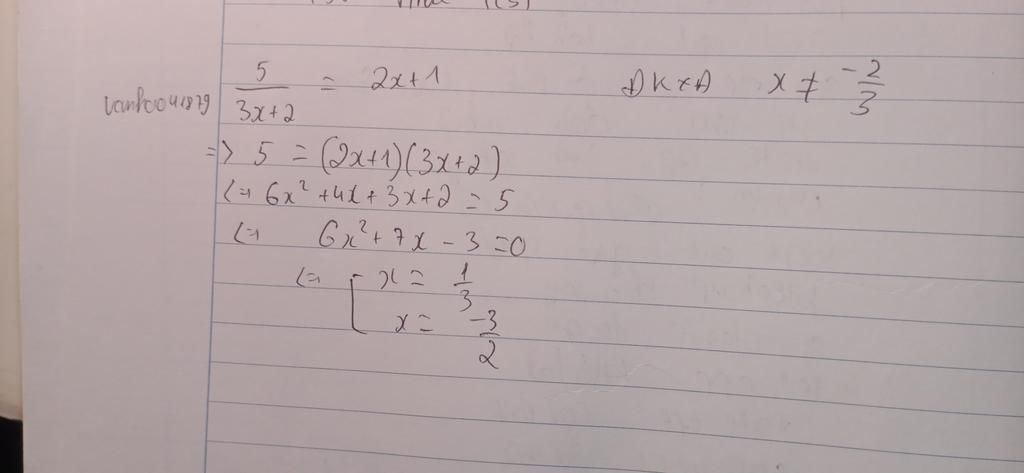 5/(3x+2) = 2x+1 ĐKXĐ x ≠ -2/3
=> 5 = (2x+1)(3x+2)
<=> 6x² + 4x + 3x + 2 = 5
<=> 6x² + 7x - 3 = 0
<=> [ x = 1/3
x = -3/2